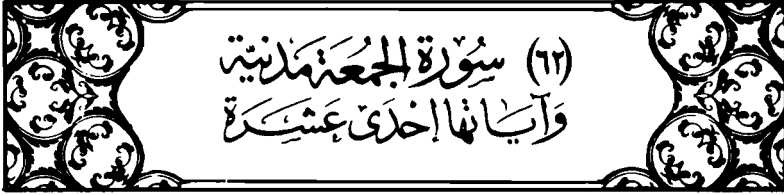 (٦٢) سُوْرَة الجُمُعَة مَدَنيّة
وَآيَاتها إحْدَىٰ عَشَرَة